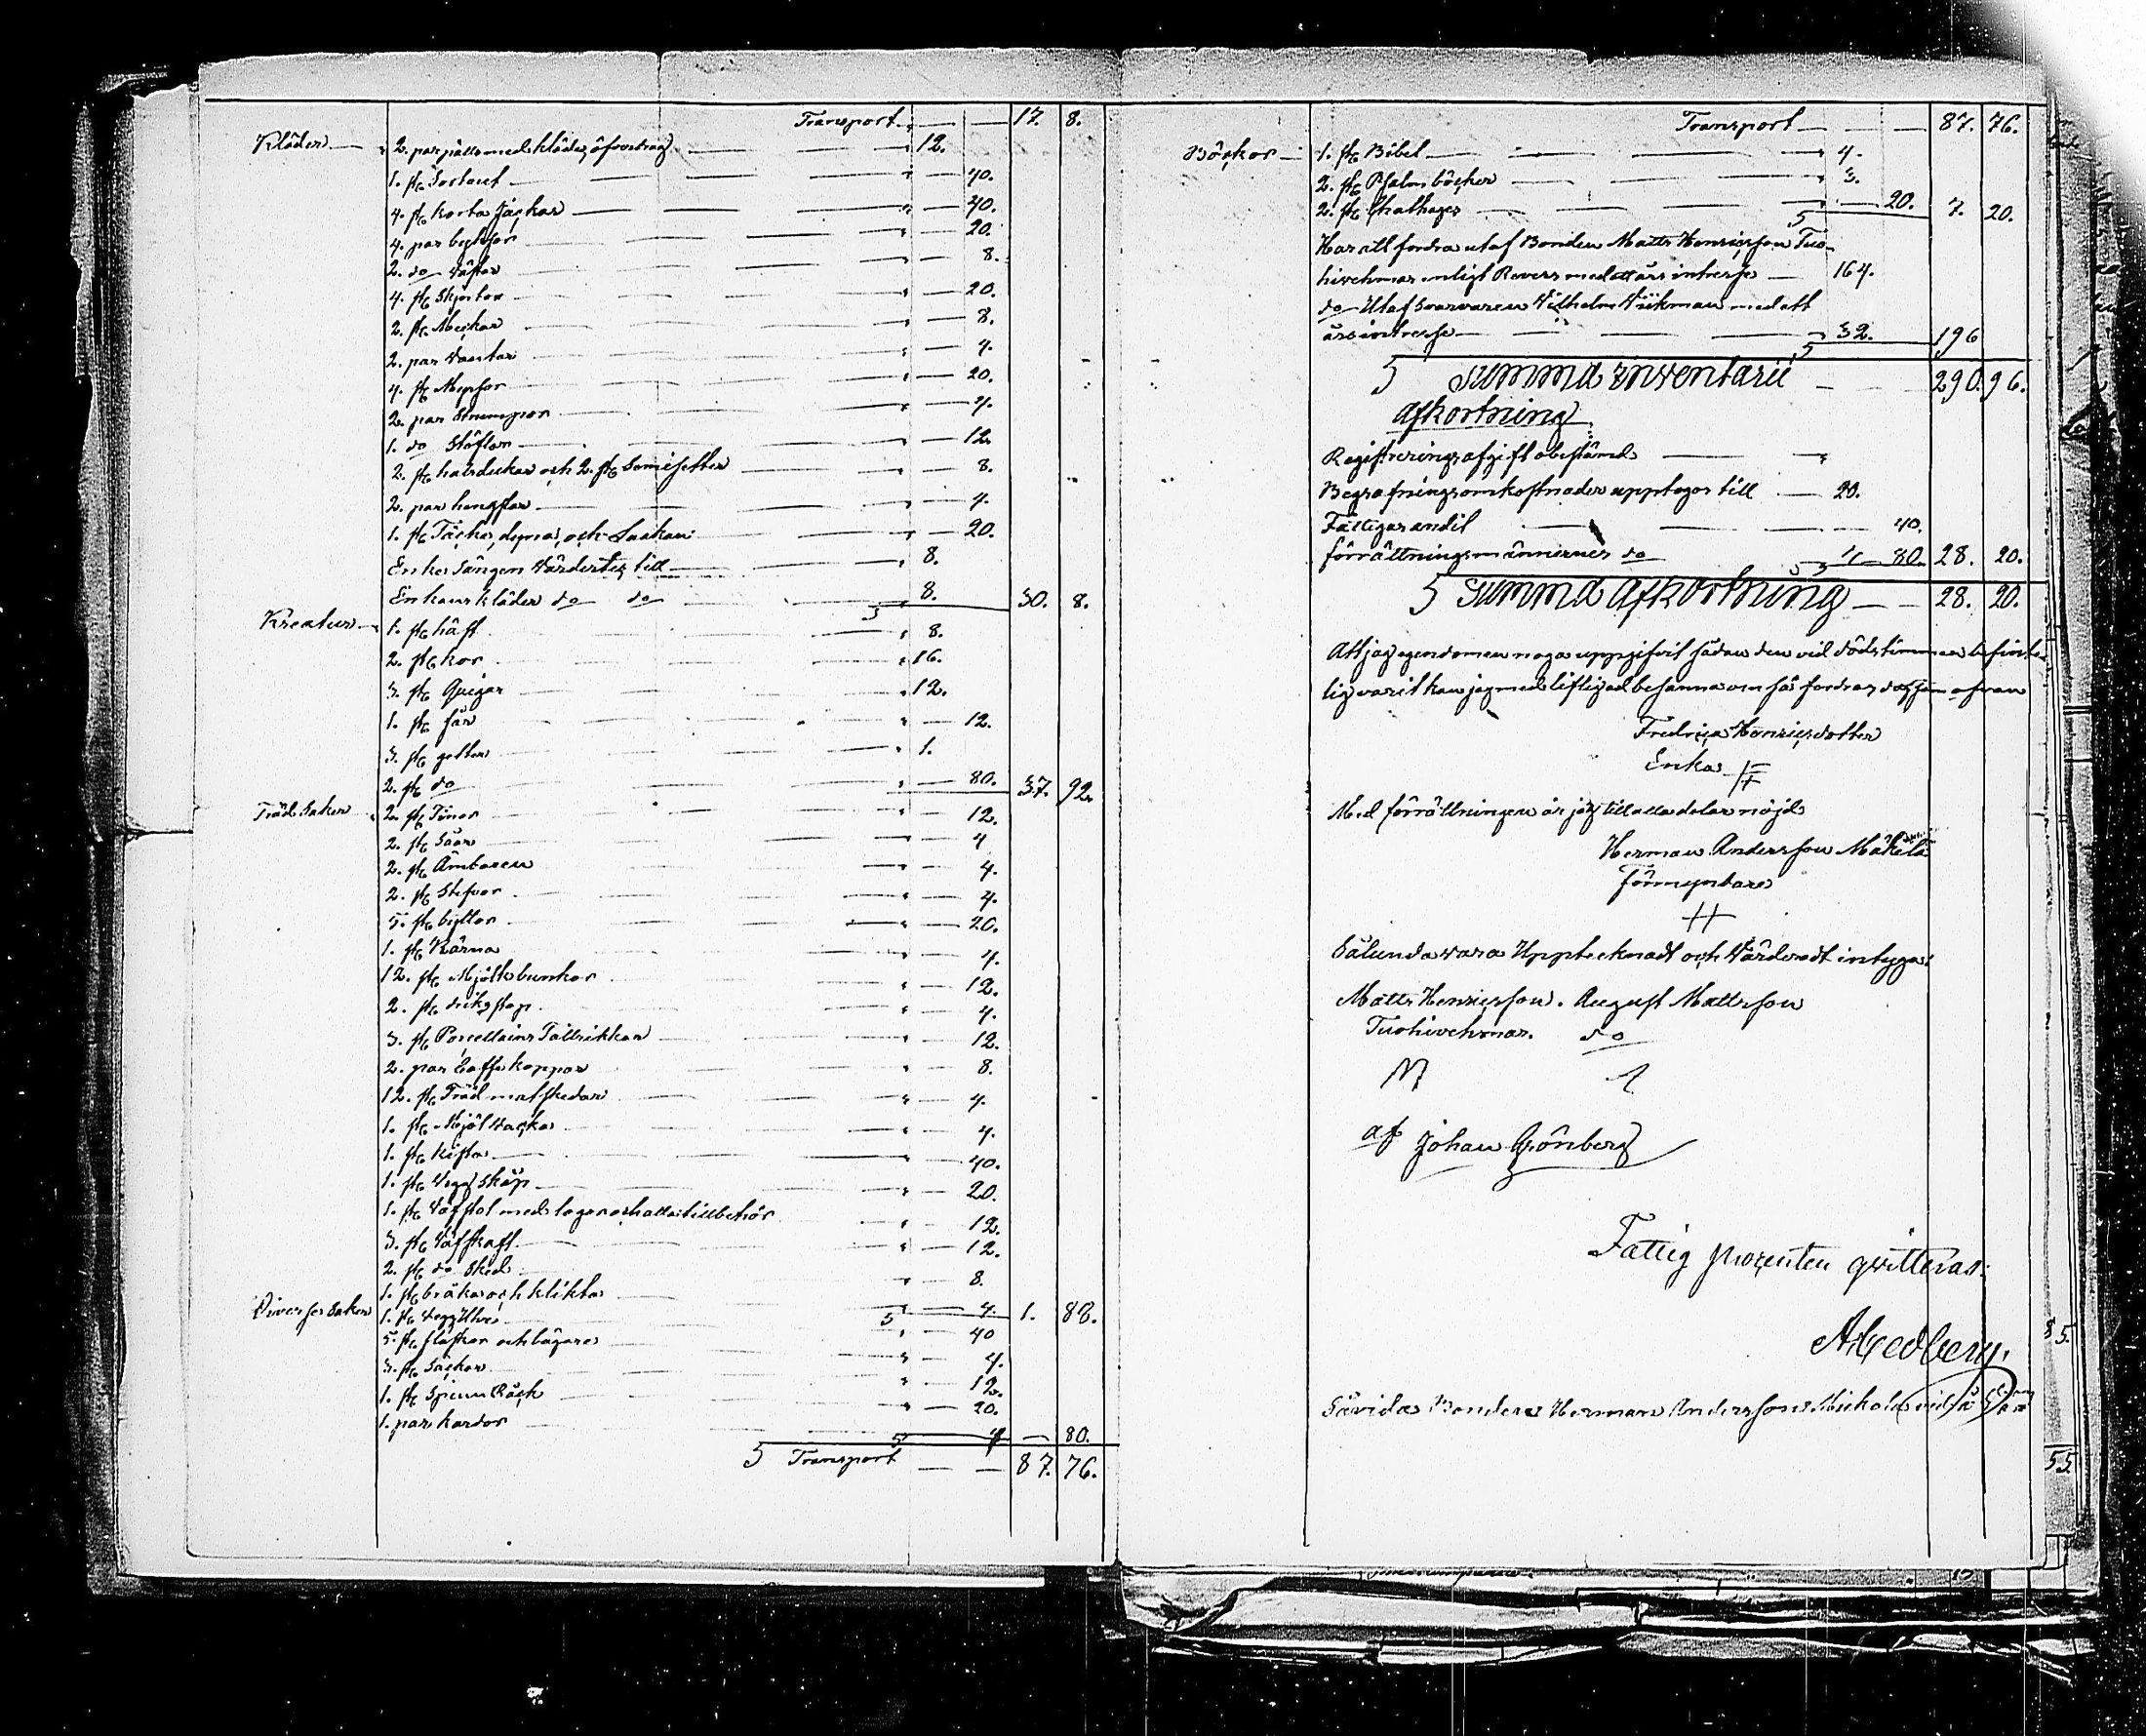 Transport 17. 8.
Kläder 2. par pälts med kläde öfverdrag 12.
1. st Sortaut 40.
4. st korta Jackor 40.
4. par byksor 20.
2. do Västar 8.
4. st Skjortor 20.
2. st Meckar 8.
2. par Vantar 4.
4. st Myssor 20.
2. par Strumpor 4.
1. do Stöflar 12.
2. st halsdukar och 2. st Semisetter 8.
2. par hanskar 4.
1. st Täcke, dyna, och Laakan 20.
Enke Sängen Värderter till 8.
Enkans kläder do do 8. 30. 8.
Kreatur 1. st häst 8.
2. st kor 16.
3. st Quigor 12.
1. st får 12.
3. st getter 1.
2. st do 80. 37. 92.
Träd Saker 2. st Tinor 12.
2. st Såar 4
2. st Ämbaren 4.
2. st Stefvor 4.
5. st byttor 20.
1. st Kärna 4.
12. st Mjölkbunkor 12.
2. st drikstop 4.
3. st Porcellains Tallrikkar 12.
2. par Caffe koppar 8.
12. st Träd matskedar 4.
1. st Mjöl Vacka 4.
1. st kista 40.
1. st Vegg Skåp 20.
1. st Väfstol med tillbehör 12.
3. st Väfskaft 12.
2. st do Sked 8.
1. st bråka och klikta 4. 1. 88.
Diverse Saker 1. st Vegg Uhr 40
5. st flaskor och lägare 4.
3. st Säckar 12.
1. st Spinn Råck 20.
1. par kardor 4 80.
Transport 87. 76.
Transport 87. 76.
Böcker 1. st Bibel 4.
2. st Psalmböcker 3.
2. st 20. 7. 20.
Har att fordra utaf Bonden Matts Henricsson Tuo-
hivehmas enligt Revers med ett års intresse 164.
do Utaf Svarvaren Vilhelm Vikman med ett
års intresse 32. 196
Summa Inventarii 290. 96.
Afkortning
Registreringsafgift obestämd
Begrafningsomkostnader upptages till 20.
Fattigas andel 40.
förrättningsmännernes do 80. 28. 20.
Summa Afkortning 28. 20.
Att jag egendomen noga uppgifvit sådan den vid dödstimman befint-
lig varit kan jag med liflig ed besanna om så fordras
Fredrica Henricsdotter
Enka
Med förrättningen är jag till alla delar nöjd
Herman Andersson Mäkelä
förmyndare
Sålunda vara Upptecknadt och Värderadt intyga:
Matts Henricsson. August Mattsson
Tuohivehmas. do
af Johan Grönberg
Fattig procenten qvitteras:
A. Cedberg.
Såvida Bonden Herman Andersson